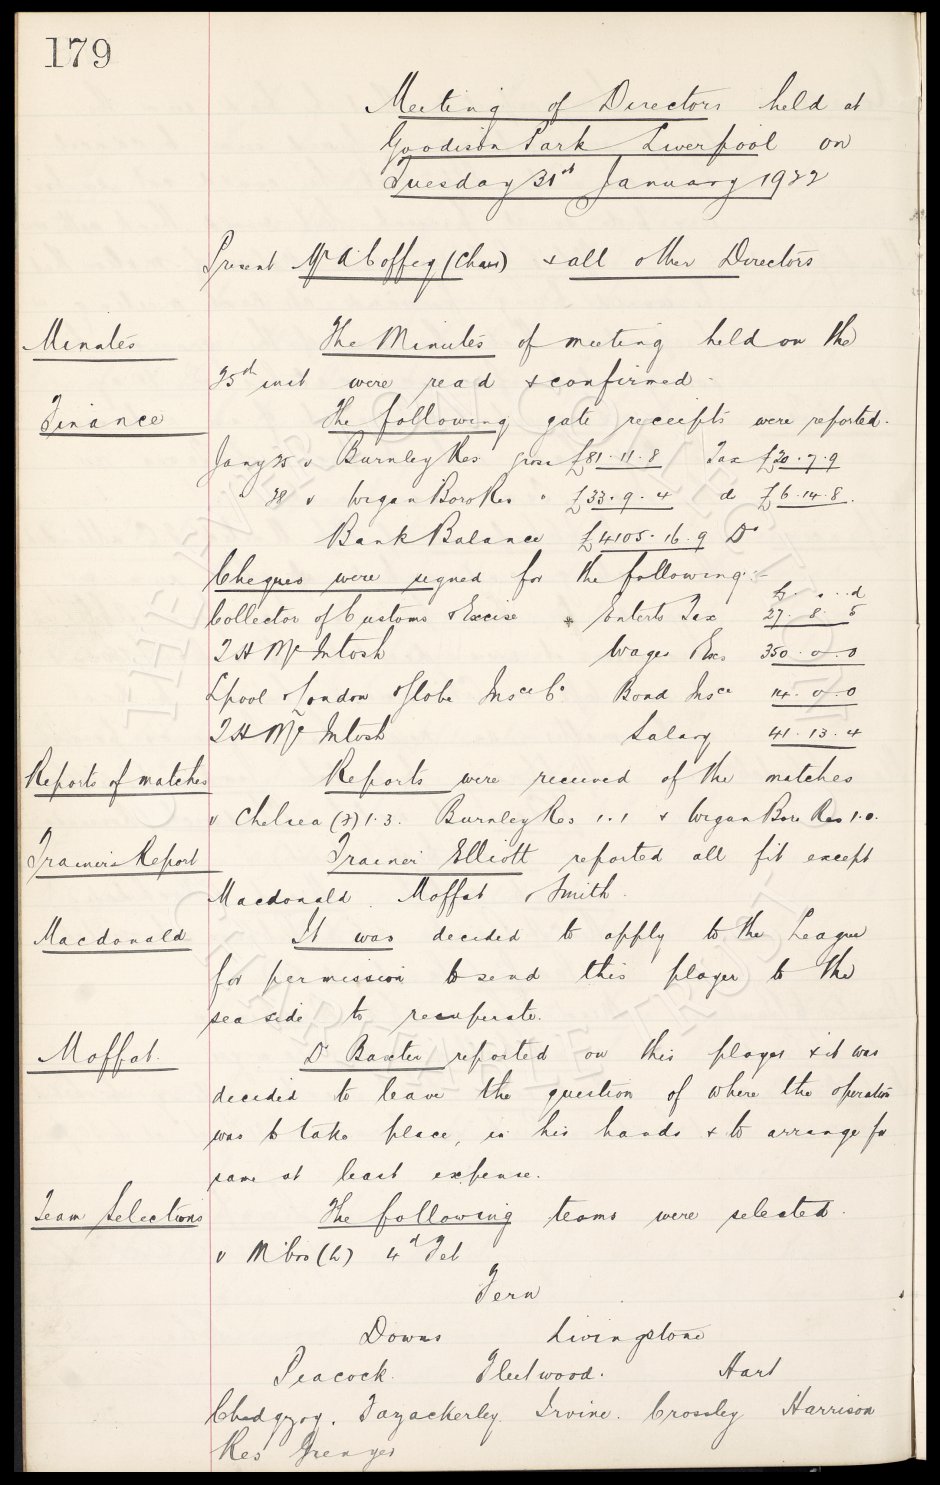 179
Meeting of Directors held at
Goodison Park Liverpool on
Tuesday 31st January 1922
Present Mr A Coffey (Chair) & all other Directors
Minutes
The Minutes of meeting held on the
25th inst were read & confirmed -
Finance
The following gate receipts were reported.
Jany 25 v Burnley Res gross £81.11.8 Tax £20.7.9
" 28 v Wigan Boro Res " £33.9.4 do £6.14.8.
Bank Balance £4105.16.9 Dr
Cheques were signed for the following:-
£ s d
Collector of Customs & Excise Enterts Tax 27. 8. 5
T H McIntosh Wages & Exs 350.0.0
Lpool & London & Globe Insce Co Bond Insce 14.0.0
T H McIntosh Salary 41.13.4
Reports of matches
Reports were received of the matches
v Chelsea (a) 1.3. Burnley Res 1.1 & Wigan Boro Res 1.0.
Trainer's Report
Trainer Elliott reported all fit except
Macdonald. Moffat & Smith.
Macdonald
It was decided to apply to the League
for permission to send this player to the
sea side to recuperate.
Moffat.
Dr Baxter reported on this player & it was
decided to leave the question of where the operation
was to take place, in his hands & to arrange for
same at least expense.
Team Selections
The following teams were selected.
v M'bro (h) 4th Feb
Fern
Downs Livingstone
Peacock. Fleetwood. Hart
Chedgzoy. Fazackerley. Irvine. Crossley Harrison
Res Grenyer